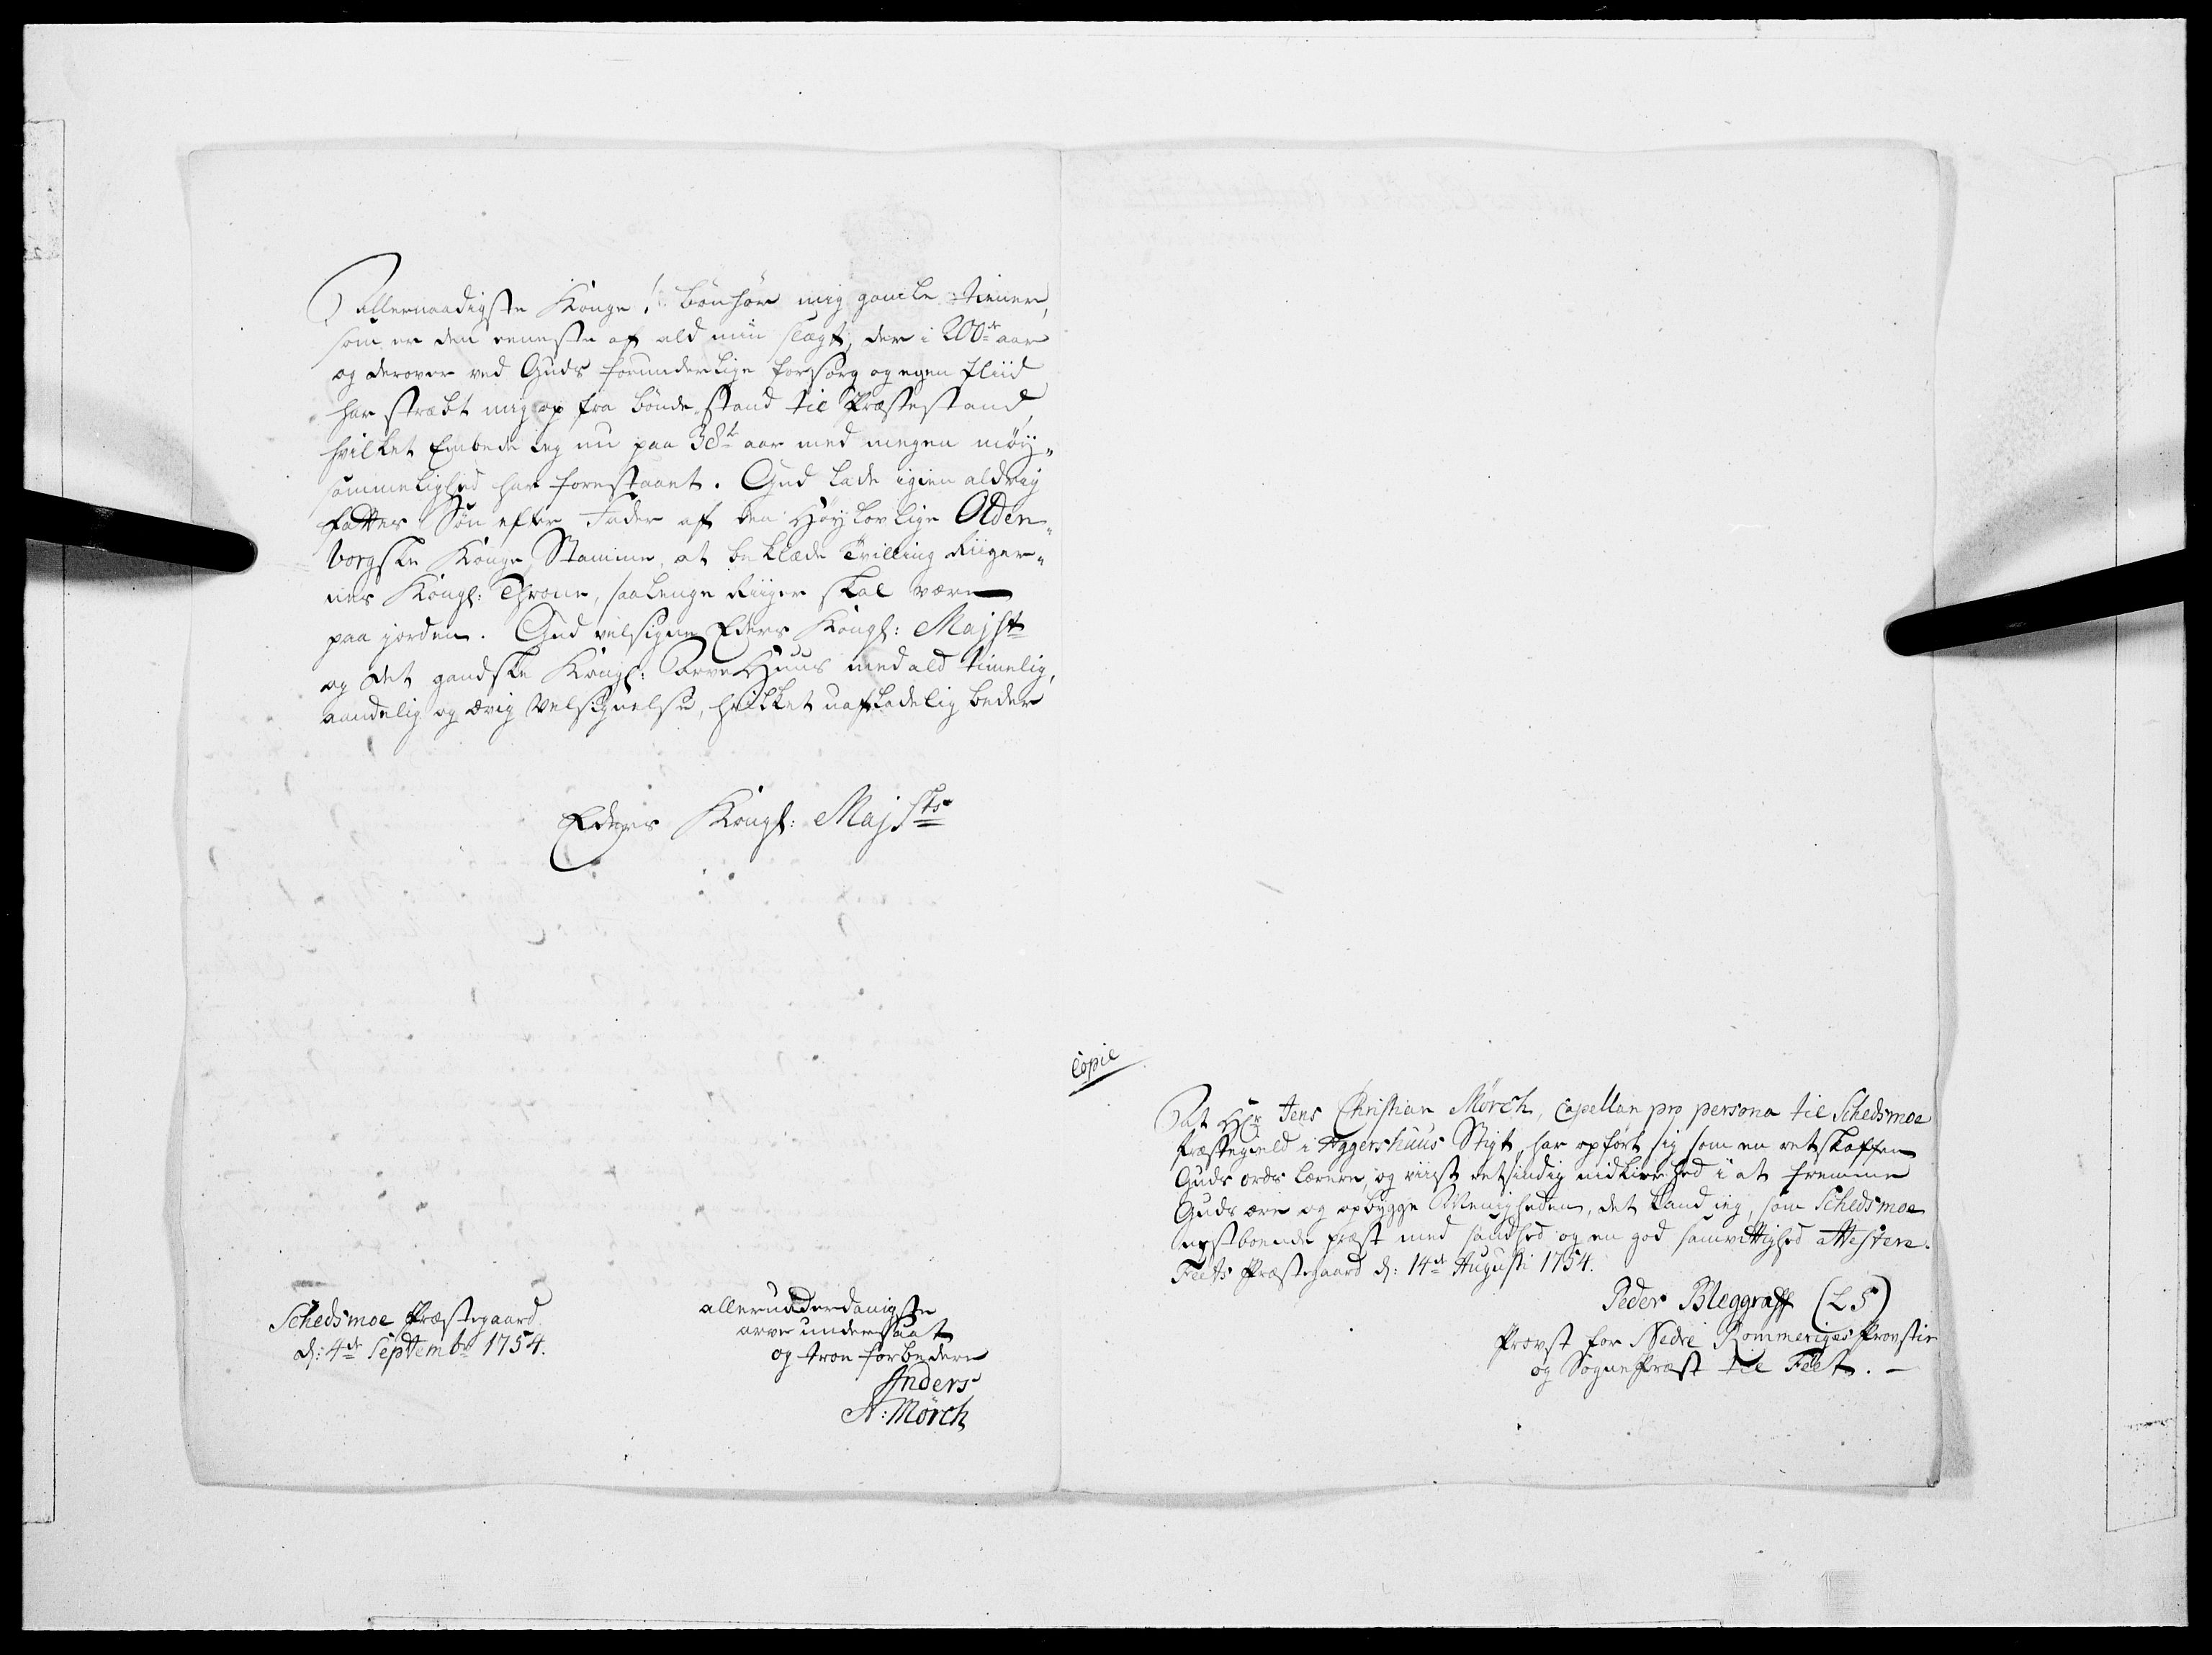 Allernaadigste Konge! bønhør mig gamle tiener,
som er den eneste af ald min slægt, der i 200de aar
og derover ved Guds forunderlige forsorg og egen fliid
har stræbt mig op fra bønde stand til Præstestand,
hvilket Embede ieg nu paa 38te aar med megen møy„
sommelighed har forestaaet. Gud lade igien aldrig
fattes Søn efter Fader af den Høylovlige Olden„
borgske Konge Stamme, at beklæde Tvilling Riiger„
nes Kongl: Throne, saalenge Riiger skal være
paa jorden. Gud velsigne Eders Kongl: Majst
og det gandske Kongl: ArveHuus med ald timelig,
aandelig og ævig Velsignelse, hvilket uafladelig beder
Eders Kongl: Majsts
Schedsmoe Præstegaard
d: 4de Septembr 1754.
allerunderdanigste
arve undersaat
og troe forbedere
Anders
A: Mörch
Copie
At Hr Jens Christian Mörch, Capellan pro persona til Schedsmoe
Præstegield i Aggershuus Stigt, har opført sig som en retskaffen
Guds ords lærere, og viist retsindig nidkierhed i at fremme
Guds ære og opbygge Menigheden, det kand ieg, som Schedsmoe
nestboende præst med sandhed og en god samvittighed attestere.
Feets Præstegaard d: 14de Augusti 1754.
Peder Bleggraff (LS)
Provst for Nedre Rommeriges Provstie
og SognePræst til Feet. –